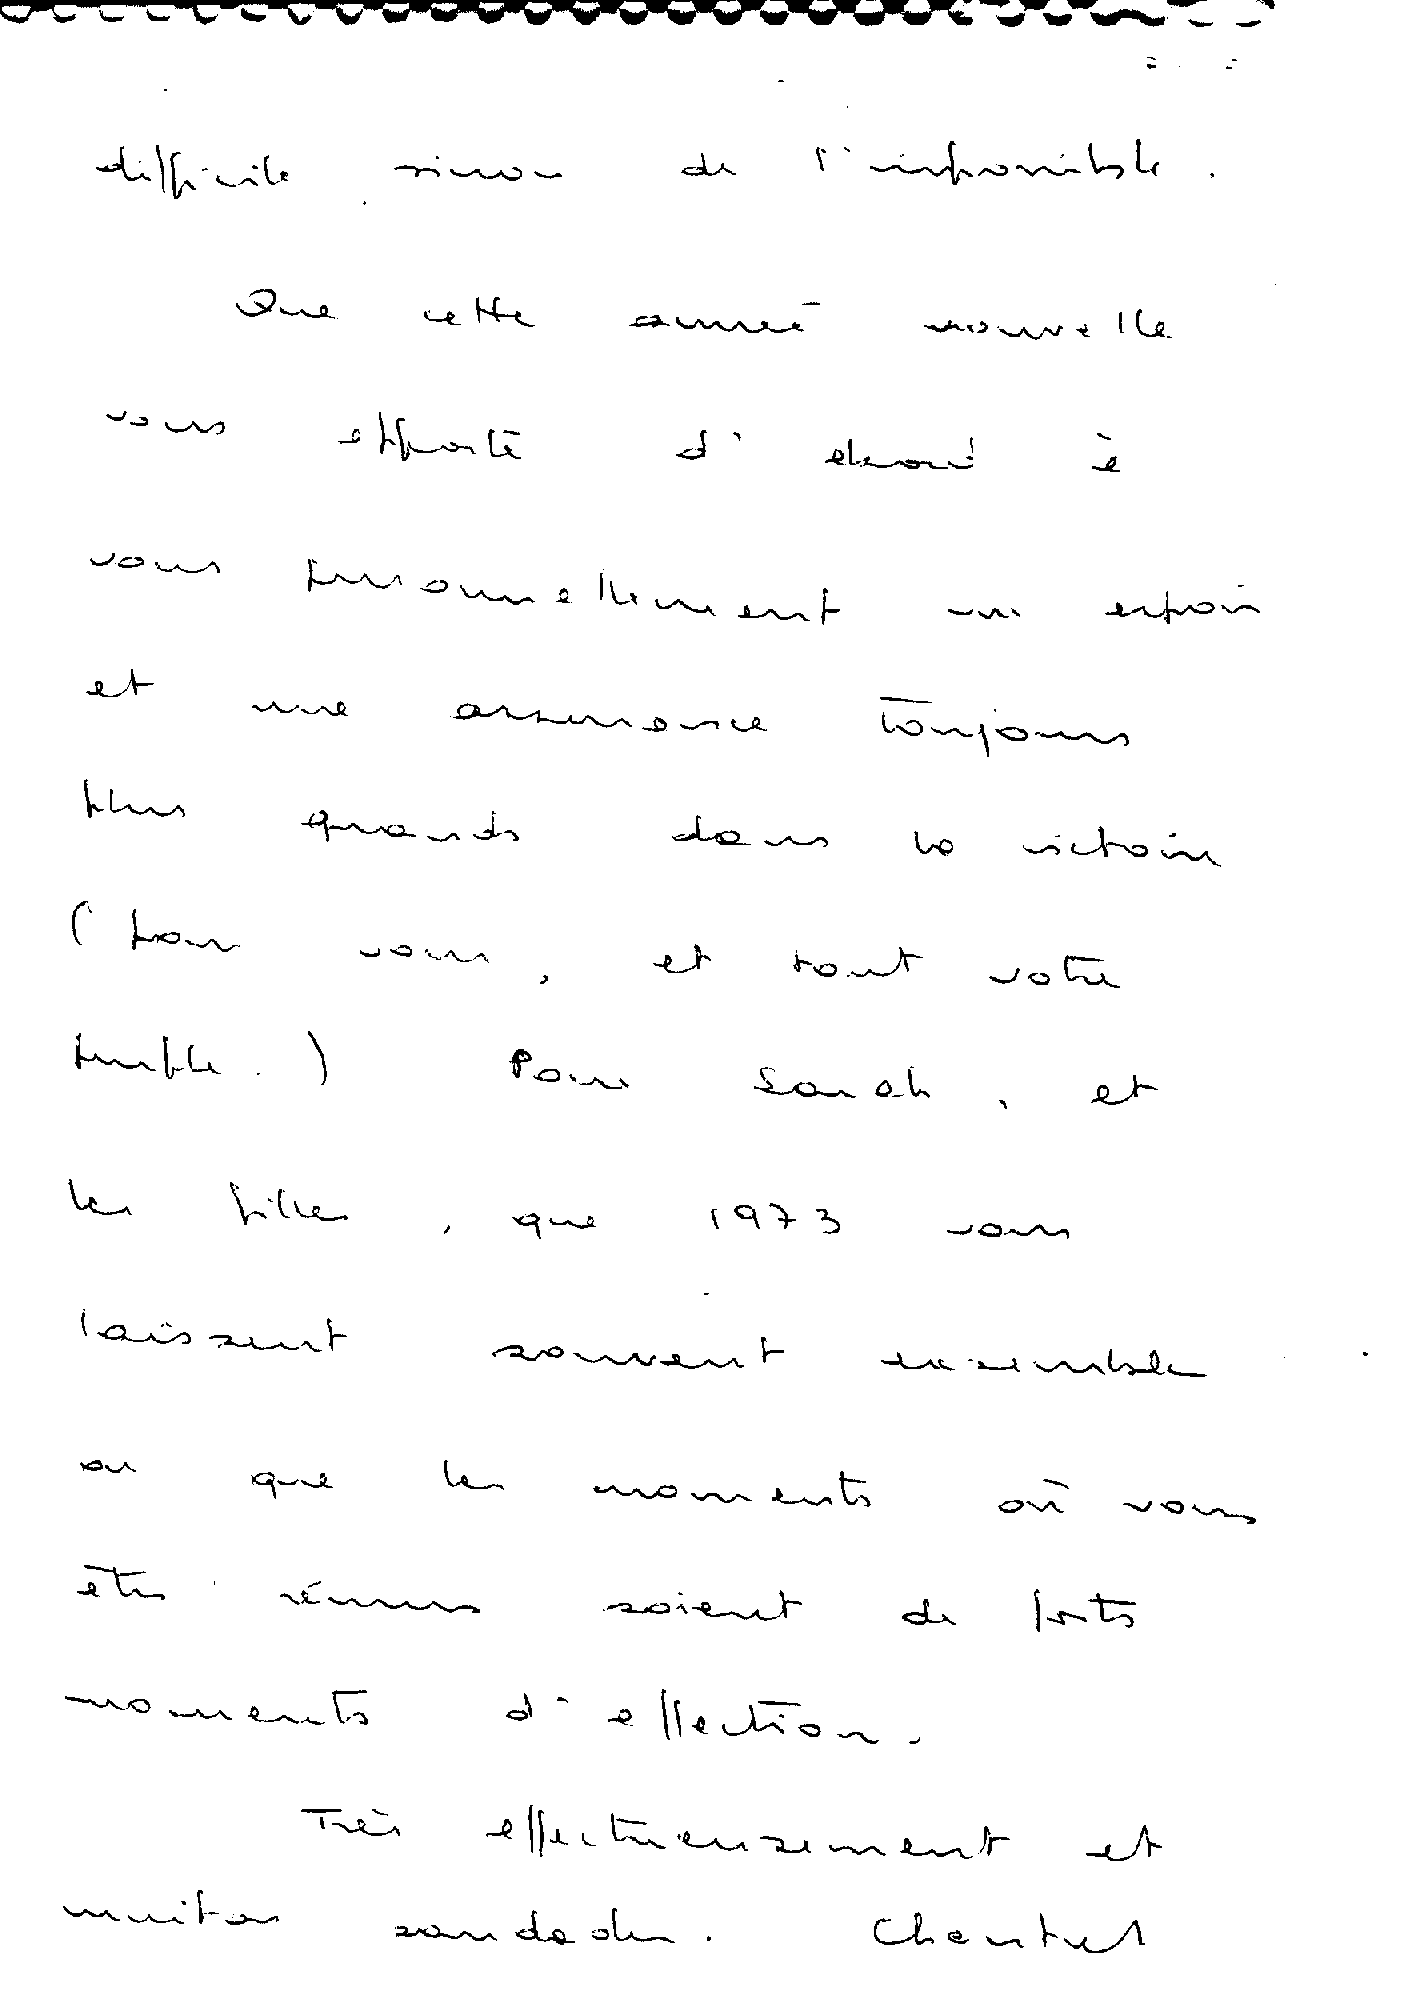 difficile sinon de l'impossible.
Que cette année nouvelle
vous apporte d'abord à
vous personnellement un espoir
et une assurance toujours
plus grands dans la victoire
(pour vous, et tout votre
peuple.) Pour Sarah, et
les filles, que 1973 vous
laissent souvent ensemble
ou que les moments où vous
êtes réunis soient de forts
moments d'affection.
Très affectueusement et
muitas saudades. Chantal